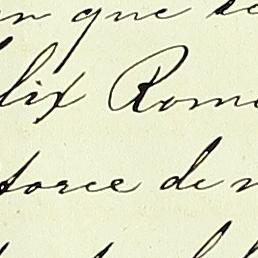 en que se
lix Rom
torce de n